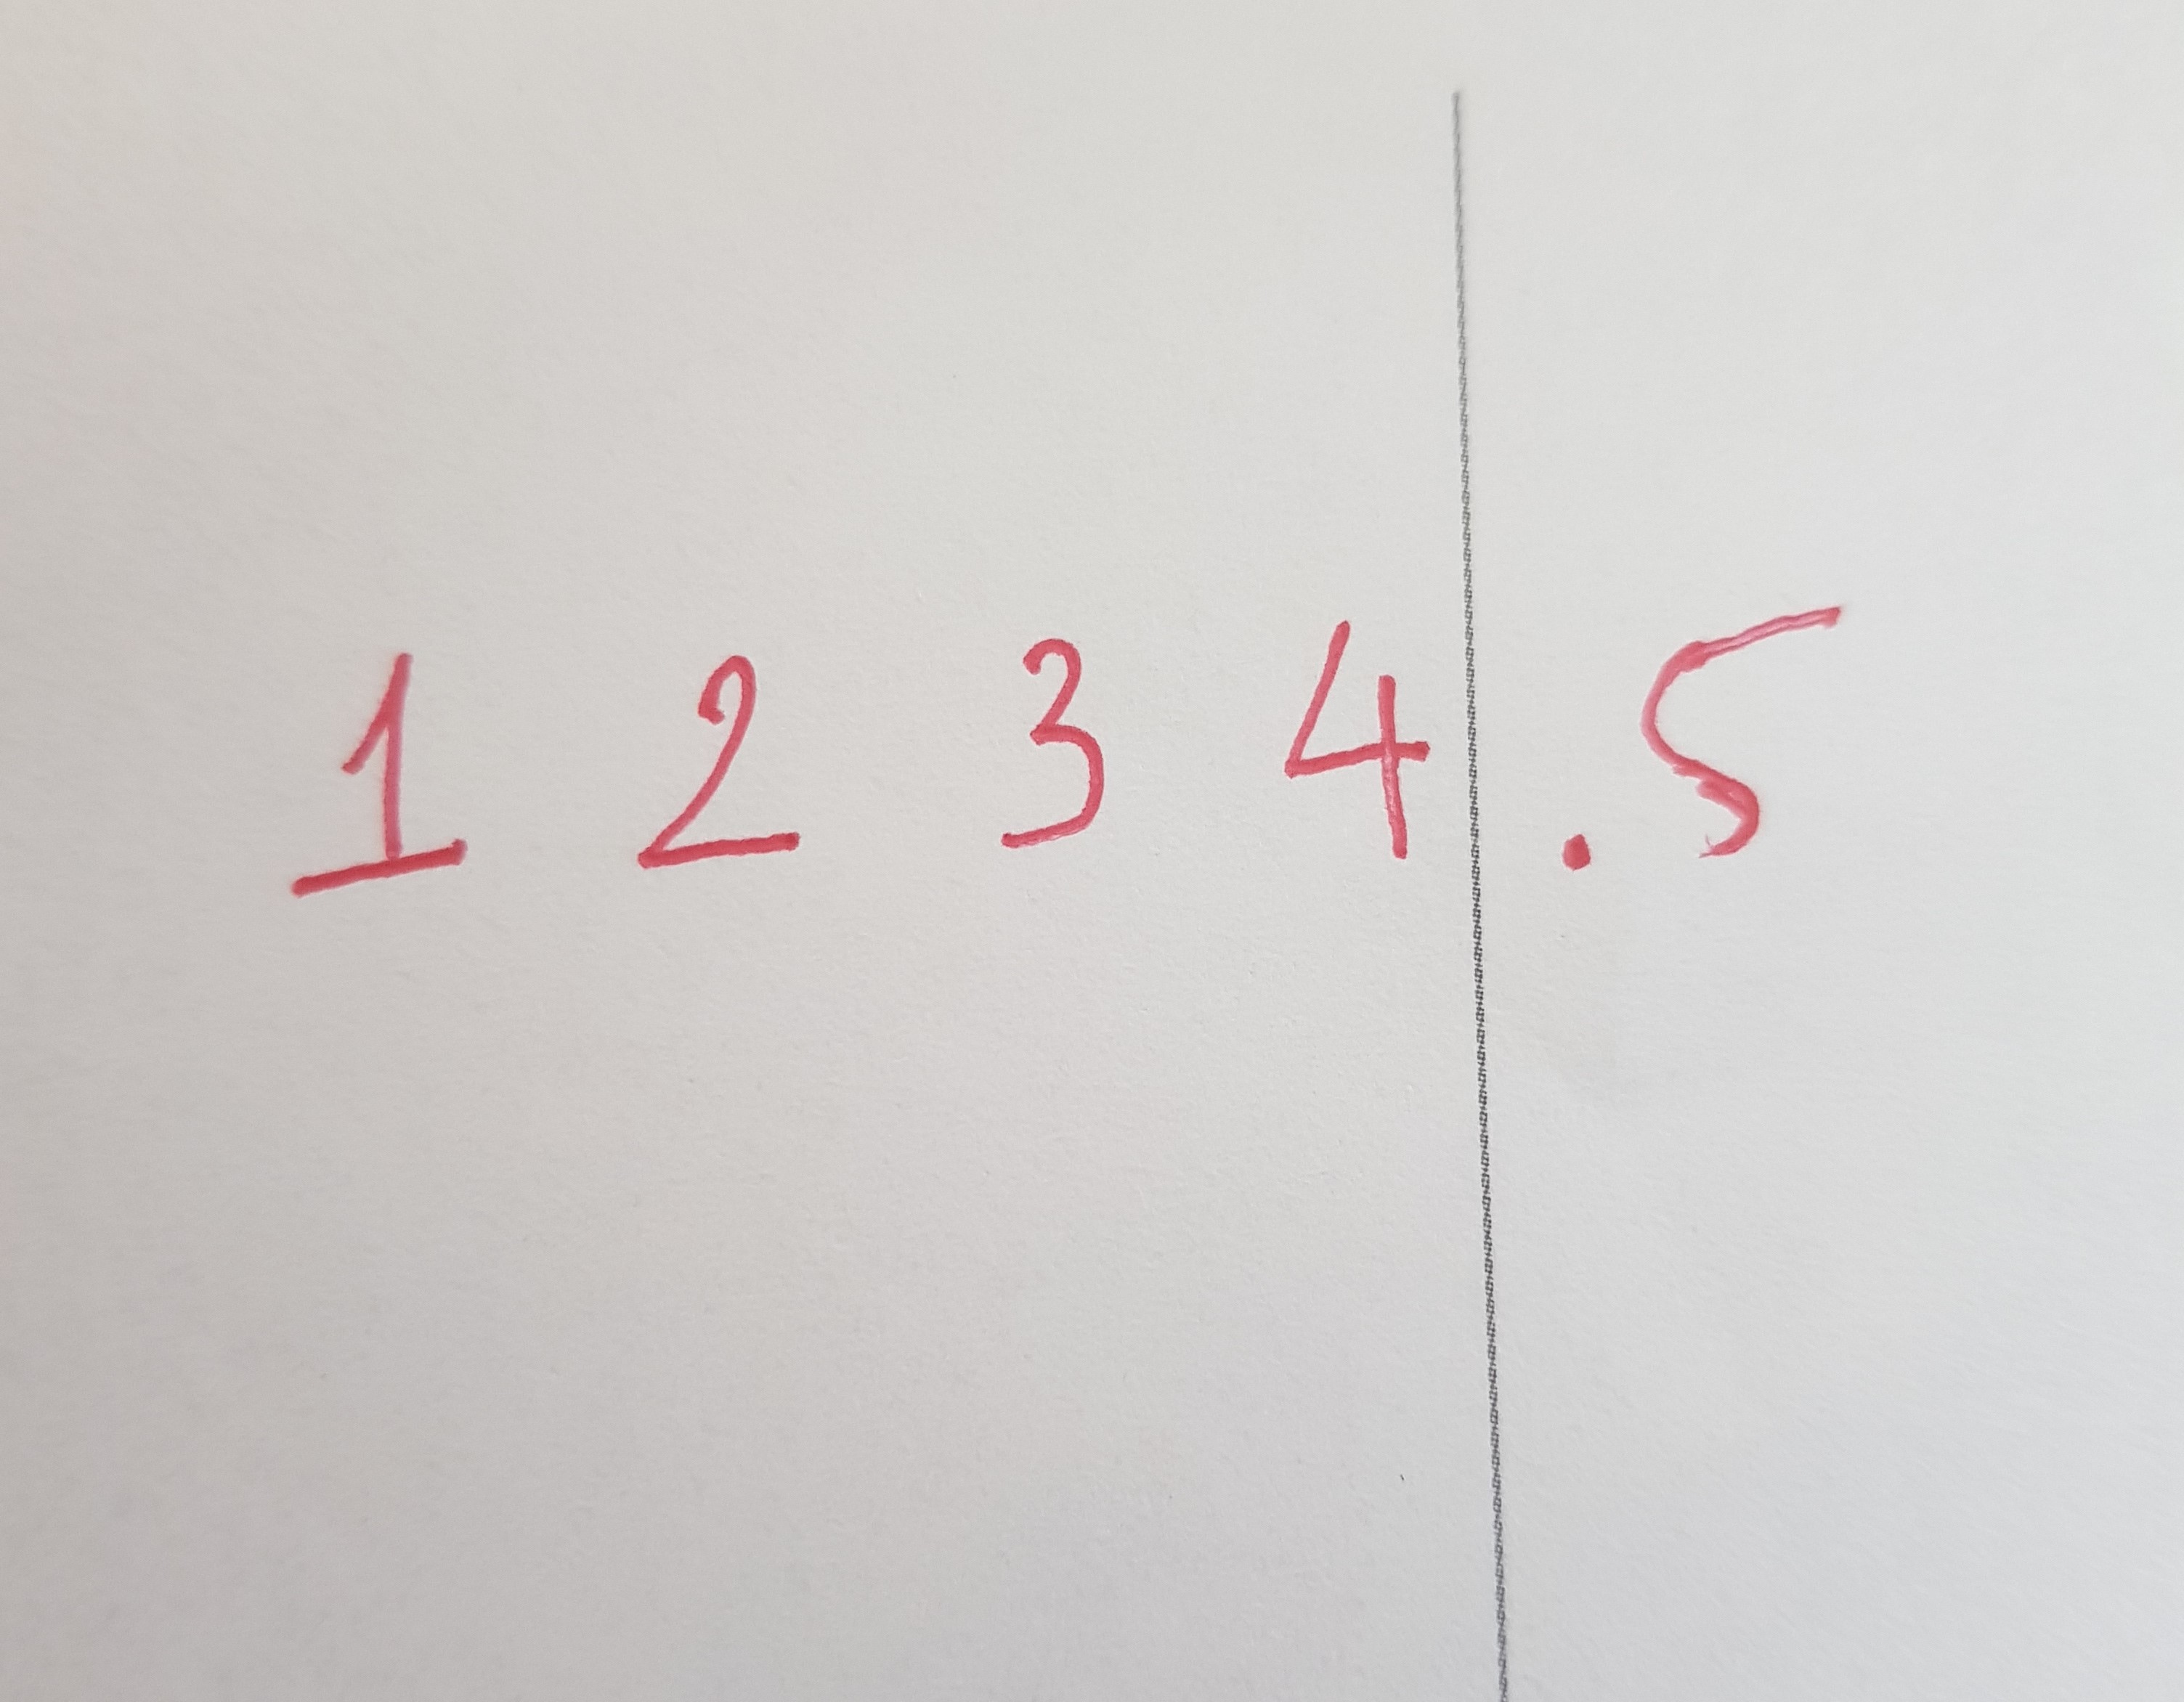 1 2 3 4 . 5